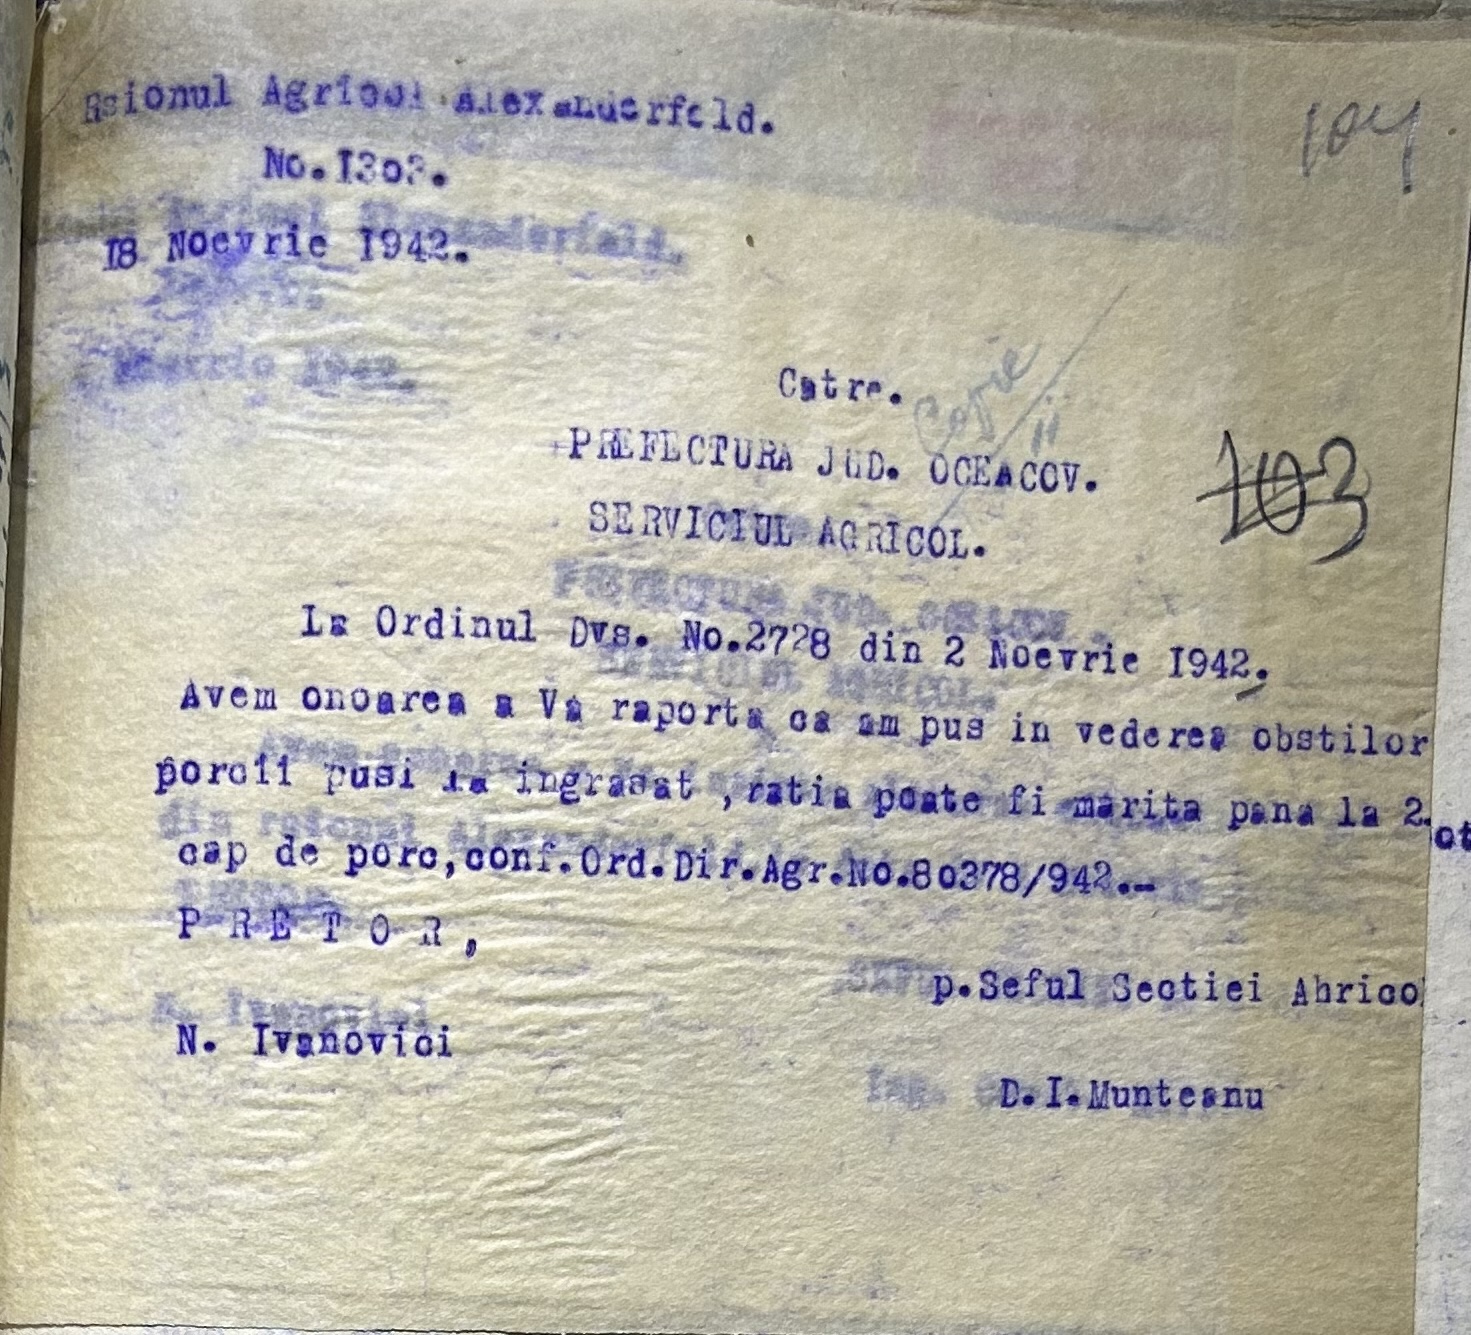 Raionul Agricol Alexanderfeld.
104.
No.I303.
18 Noevrie I942.
Catre.
Copie
PREFECTURA JUD. OCEACOV.
103
SERVICIUL AGRICOL.
La Ordinul Dvs. No.2728 din 2 Noevrie I942.
Avem onoarea a Va raporta ca am pus in vederea obstilor
porcii pusi la ingrasat ,ratia poate fi marita pana la 2.
cap de porc,conf.Ord.Dir.Agr.No.80378/942.-
P R E T O R,
p.Seful Sectiei Ahricol
N. Ivanovici
D.I.Munteanu